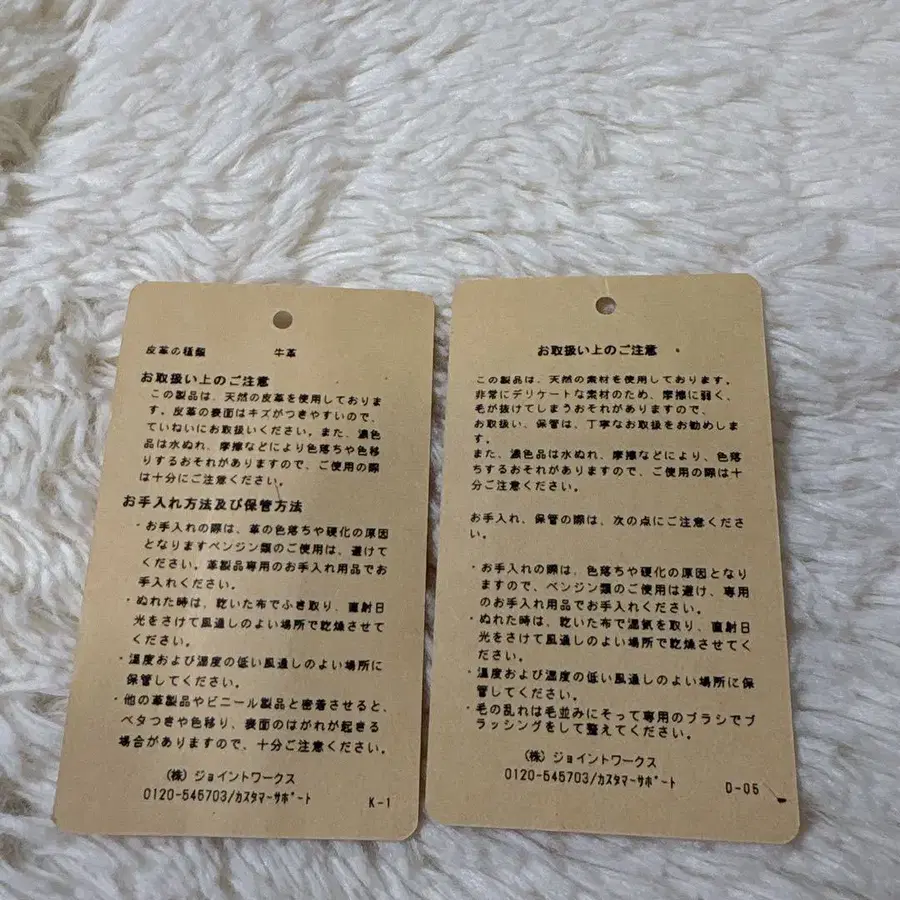 皮革の種類 牛革
お取扱い上のご注意
この製品は、天然の皮革を使用しておりま
す。皮革の表面はキズがつきやすいので、
ていねいにお取扱いください。また、濃色
品は水ぬれ、摩擦などにより色落ちや色移
りするおそれがありますので、ご使用の際
は十分にご注意ください。
お手入れ方法及び保管方法
・お手入れの際は、革の色落ちや硬化の原因
となりますベンジン類のご使用は、避けて
ください。革製品専用のお手入れ用品でお
手入れください。
・ぬれた時は、乾いた布でふき取り、直射日
光をさけて風通しのよい場所で乾燥させて
ください。
・温度および湿度の低い風通しのよい場所に
保管してください。
・他の革製品やビニール製品と密着させると、
ベタつきや色移り、表面のはがれが起きる
場合がありますので、十分ご注意ください。
(株)ジョイントワークス
0120-545703/カスタマーサポート
K-1
お取扱い上のご注意
この製品は、天然の素材を使用しております。
非常にデリケートな素材のため、摩擦に弱く、
毛が抜けてしまうおそれがありますので、
お取扱い、保管は、丁寧なお取扱をお勧めしま
す。
また、濃色品は水ぬれ、摩擦などにより、色落
ちするおそれがありますので、ご使用の際は十
分ご注意ください。
お手入れ、保管の際は、次の点にご注意くださ
い。
・お手入れの際は、色落ちや硬化の原因となり
ますので、ベンジン類のご使用は避け、専用
のお手入れ用品でお手入れください。
・ぬれた時は、乾いた布で湿気を取り、直射日
光をさけて風通しのよい場所で乾燥させてく
ださい。
・温度および湿度の低い風通しのよい場所に保
管してください。
・毛の乱れは毛並みにそって専用のブラシでブ
ラッシングをして整えてください。
(株)ジョイントワークス
0120-545703/カスタマーサポート
D-05